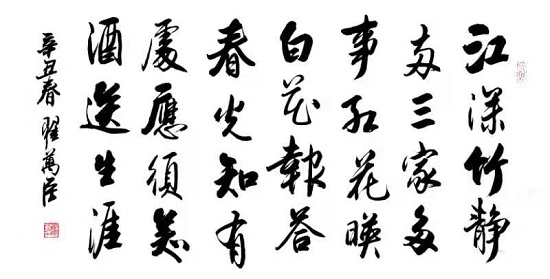 江深竹靜
两三家多
事红花暎
白花報答
春光知有
處應須美
酒送生涯
辛丑春 翟萬臣